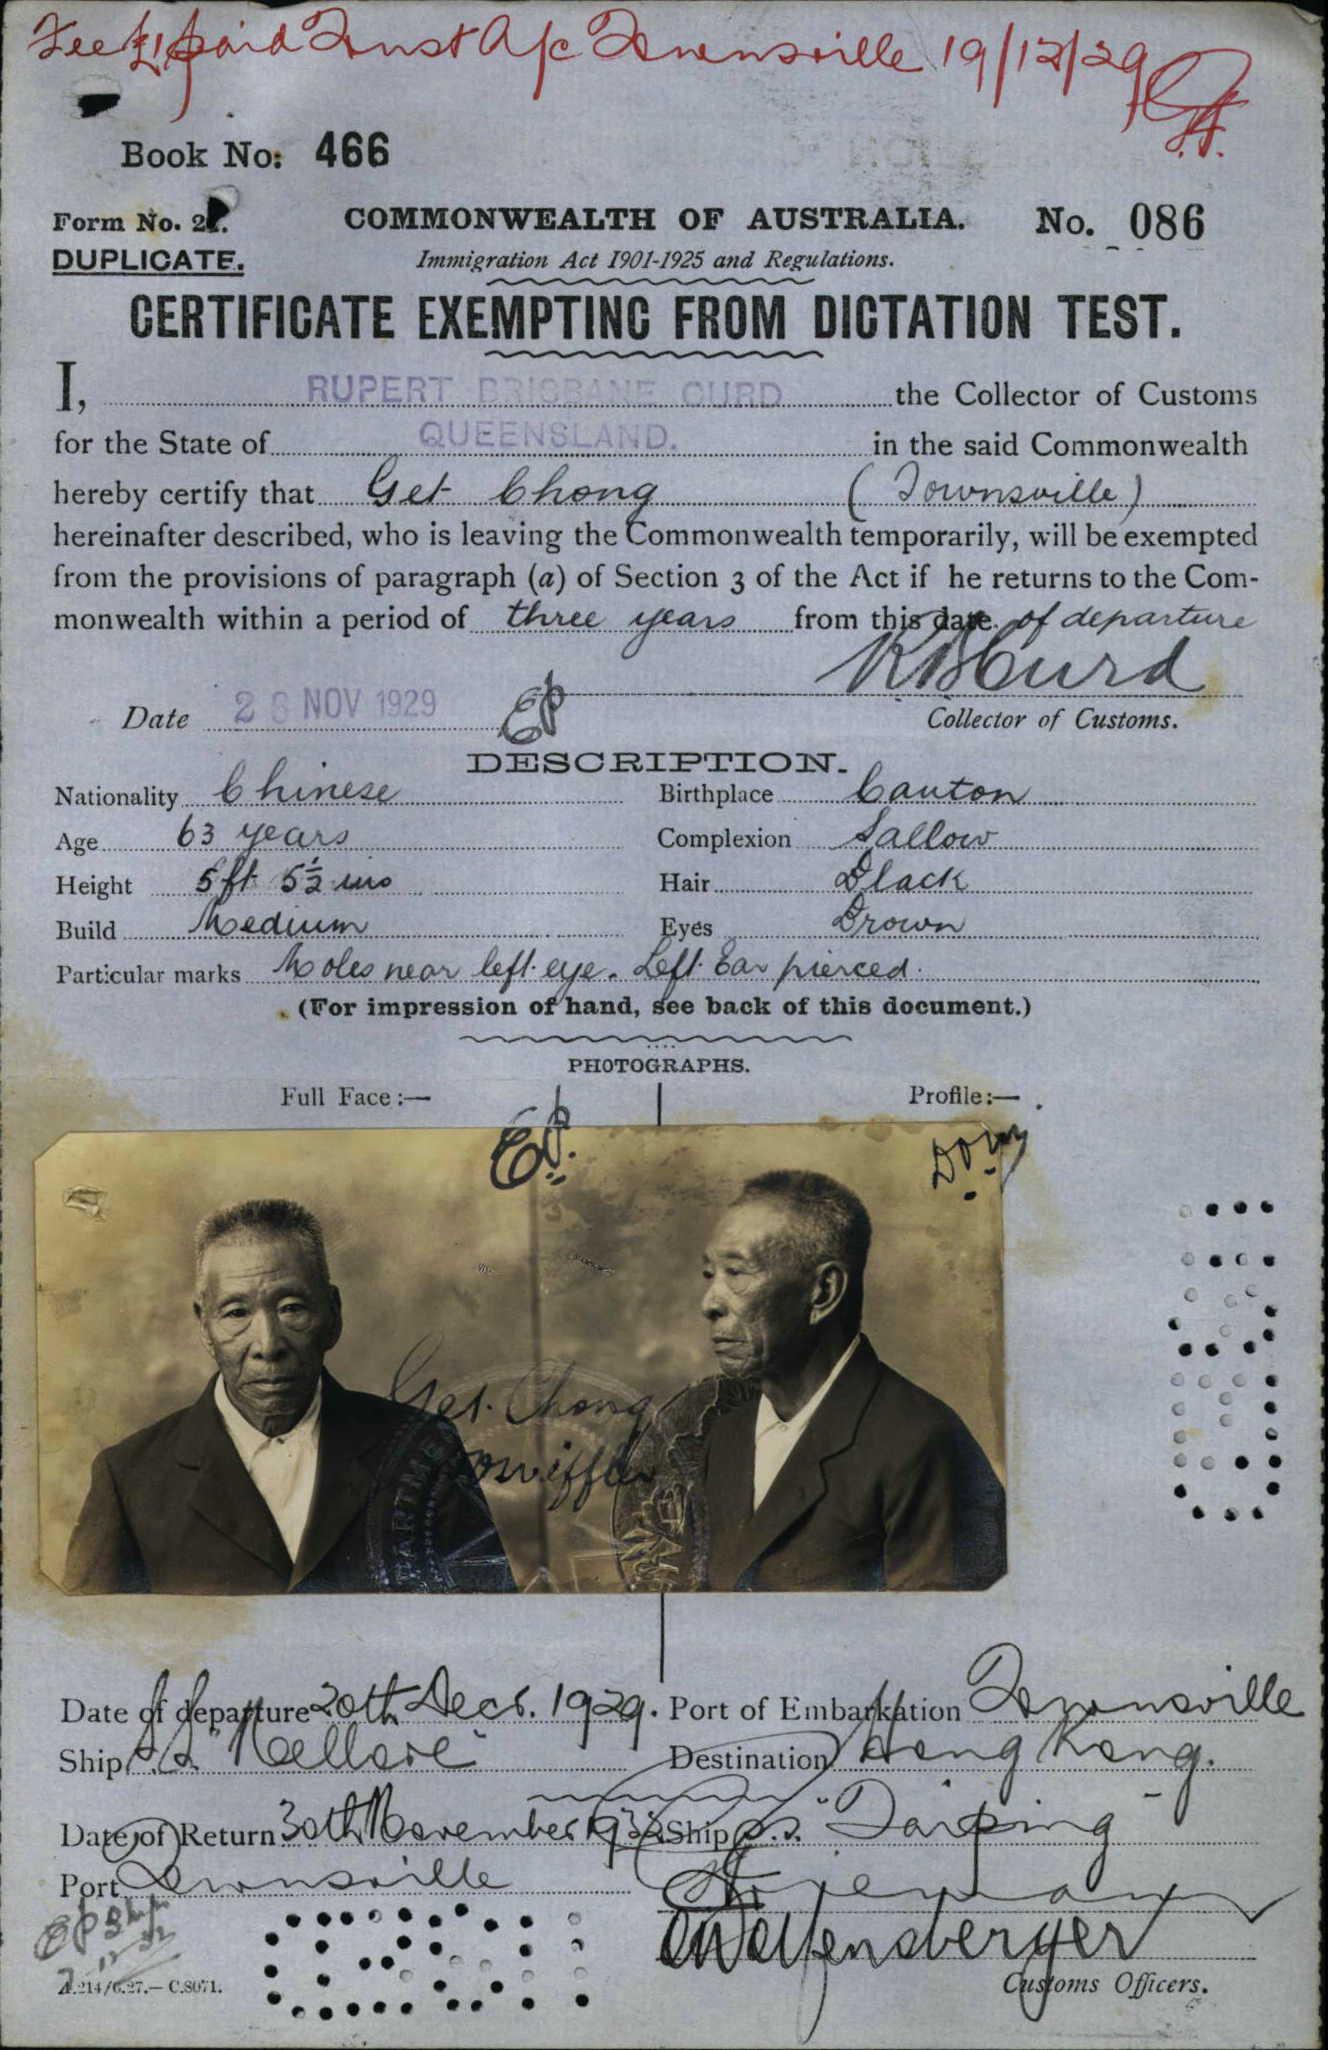 Fee £1 paid Trust A/c Townsville 19/12/29
Book No: 466
Form No. 2
COMMONWEALTH OF AUSTRALIA.
No. 086
DUPLICATE.
Immigration Act 1901-1925 and Regulations.
CERTIFICATE EXEMPTING FROM DICTATION TEST.
I, RUPERT BRISBANE CURD the Collector of Customs
for the State of QUEENSLAND. in the said Commonwealth
hereby certify that Get Chong (Townsville)
hereinafter described, who is leaving the Commonwealth temporarily, will be exempted
from the provisions of paragraph (a) of Section 3 of the Act if he returns to the Com-
monwealth within a period of three years from this date of departure
RBCurd
Date 26 NOV 1929
Collector of Customs.
DESCRIPTION.
Nationality Chinese Birthplace Canton
Age 63 years Complexion Sallow
Height 5ft 5½ ins Hair Black
Build Medium Eyes Brown
Particular marks Moles near left eye. Left Ear pierced.
(For impression of hand, see back of this document.)
PHOTOGRAPHS.
Full Face:— Profile:—
Get Chong
Date of departure 20th Decr. 1929. Port of Embarkation Townsville
Ship S.S. "Nellore" Destination Hong Kong.
Date of Return 30th November 1932 Ship s.s. "Taiping"
Port Townsville
Customs Officers.
A.214/6.27.—C.8071.